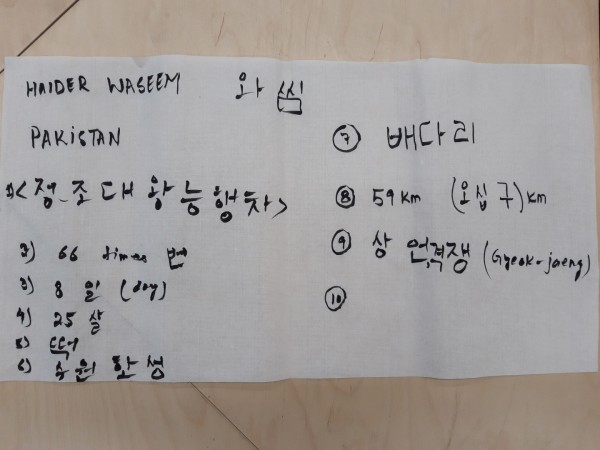 HAIDER WASEEM 와 씸
PAKISTAN
1) <정.조 대 왕 능 행 차>
2) 66 times 번
3) 8 일 (day)
4) 25 살
5) 떡
6) 수 원 화 성
⑦ 배다리
⑧ 59 km (오십 구) km
⑨ 상 언,격쟁 (Gyeok-jaeng)
⑩